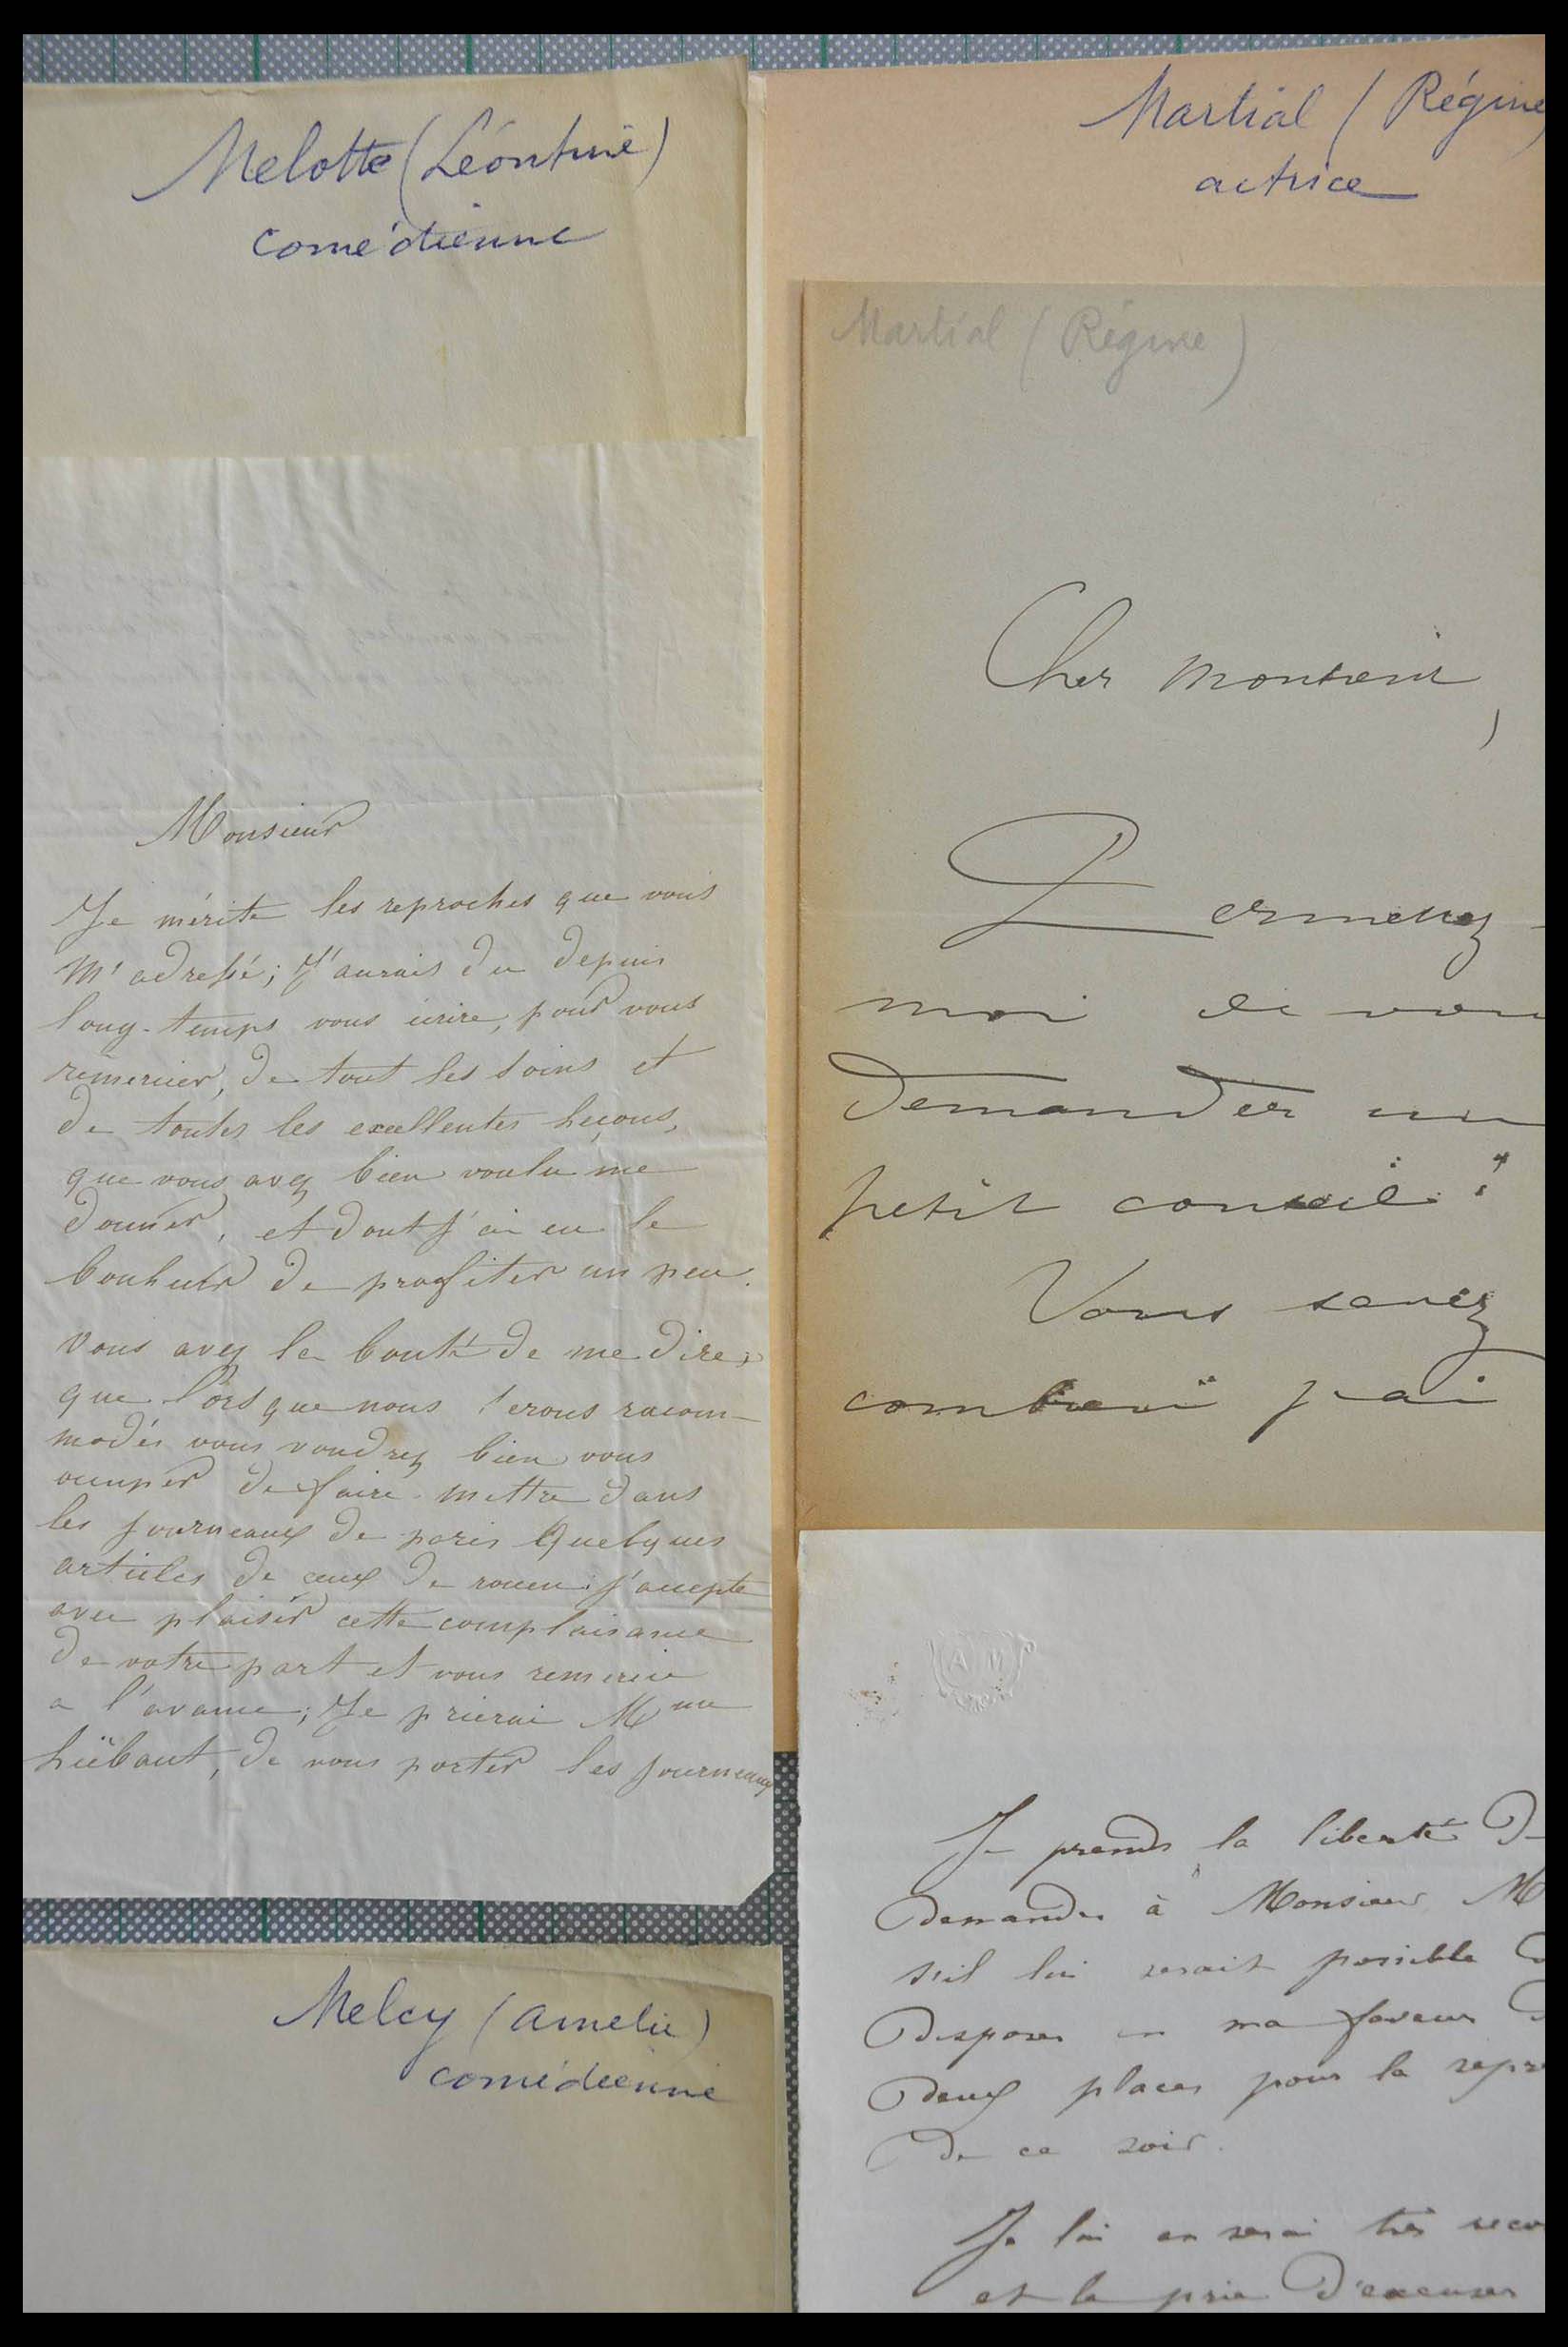 Melotte (Léontine)
comédienne
Monsieur
Je mérite les reproches que vous
m'adressé; J'aurais du depuis
long-temps vous écrire, pour vous
remercier, de tout les soins et
de toutes les excellentes leçons,
que vous avez bien voulu me
donner, et dont j'ai eu le
bonheur de profiter un peu.
Vous avez la bonté de me dire,
que lorsque nous serons racom-
modés vous voudrez bien vous
occuper de faire mettre dans
les journeaux de paris Quelques
articles de ceux de rouen. j'accepte
avec plaisir cette complaisance
de votre part et vous remercie
a l'avance; Je prierai Mme
de vous porter les journeaux
Melcy (Amelie)
comédienne
Martial (Régine
actrice
Martial (Régine)
Cher monsieur,
Permettez-
moi de vous
demander un
petit conseil :
Vous savez
combien j'ai
A M
Je prends la liberté de
demander à Monsieur M
s'il lui serait possible
disposer en ma faveur
deux places pour la repré
de ce soir.
Je lui en serai très reco
et le prie d'excuser